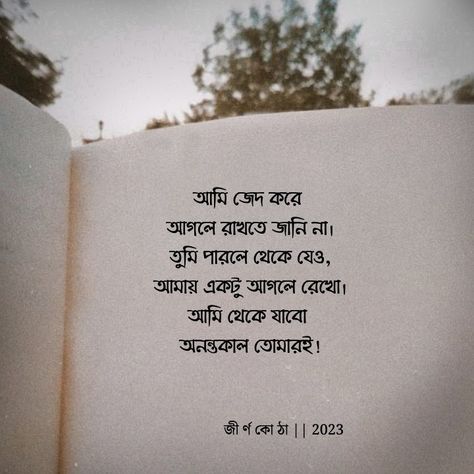 আমি জেদ করে
আগলে রাখতে জানি না।
তুমি পারলে থেকে যেও,
আমায় একটু আগলে রেখো।
আমি থেকে যাবো
অনন্তকাল তোমারই!
জী র্ণ কো ঠা || 2023